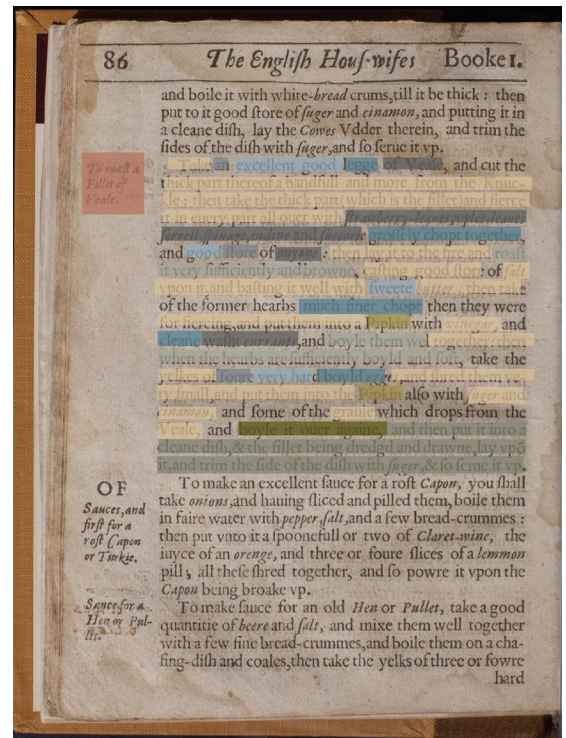 86 The Engliſh Houſ-wifes Booke 1.
and boile it with white-bread crums, till it be thick : then
put to it good ſtore of ſuger and cinamon, and putting it in
a cleane diſh, lay the Cowes Vdder therein, and trim the
ſides of the diſh with ſuger, and ſo ſerue it vp.
To roaſt a
Fillet of
Veale.
Take an excellent good legge of Veale, and cut the
thick part thereof a handfull and more from the Knuc-
kle : then take the thick part (which is the fillet) and fierce
it in euery part all ouer with ſtrawberry-leaues, violet-leaues,
ſorrell, ſpinage, endiue and ſuccorie groſſely chopt together,
and good ſtore of onyons : then lay it to the fire and roaſt
it very ſufficiently and browne, caſting good ſtore of ſalt
vpon it, and baſting it well with ſweete butter : then take
of the former hearbs much finer chopt then they were
for fiercing, and put them into a Pipkin with vineger, and
cleane waſht currants, and boyle them wel together : then
when the hearbs are ſufficiently boyld and ſoft, take the
yelkes of foure very hard boyld egges, and ſhred them ve-
ry ſmall, and put them into the Pipkin alſo with ſuger and
cinamon, and ſome of the grauie which drops from the
Veale, and boyle it ouer againe, and then put it into a
cleane diſh, & the fillet being dredgd and drawne, lay vpõ
it, and trim the ſide of the diſh with ſuger, & ſo ſerue it vp.
OF
Sauces, and
firſt for a
roſt Capon
or Turkie.
To make an excellent ſauce for a roſt Capon, you ſhall
take onions, and hauing ſliced and pilled them, boile them
in faire water with pepper, ſalt, and a few bread-crummes :
then put vnto it a ſpoonefull or two of Claret-wine, the
iuyce of an orenge, and three or foure ſlices of a lemmon
pill ; all theſe ſhred together, and ſo powre it vpon the
Capon being broake vp.
Sauce for a
Hen or Pul-
let.
To make ſauce for an old Hen or Pullet, take a good
quantitie of beere and ſalt, and mixe them well together
with a few fine bread-crummes, and boile them on a cha-
fing-diſh and coales, then take the yelks of three or fowre
hard